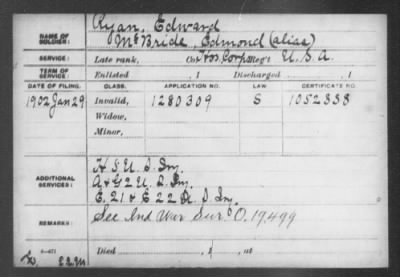 Ryan, Edward
NAME OF SOLDIER: McBride, Edmond (alias)
SERVICE: Late rank, Co. Hos. Corps Reg't U.S.A.
TERM OF SERVICE: Enlisted , 1 Discharged , 1
DATE OF FILING. CLASS. APPLICATION NO. LAW. CERTIFICATE NO.
1902 Jan 29 Invalid, 1280309 S 1052338
Widow,
Minor,
H 5 U.S. Inf.
ADDITIONAL SERVICES: A & G 2 U.S. Inf.
E. 21 & E 22 U.S. Inf.
REMARKS: See Ind War Sur. O. 17499
Died , 1 , at
3—471
22M